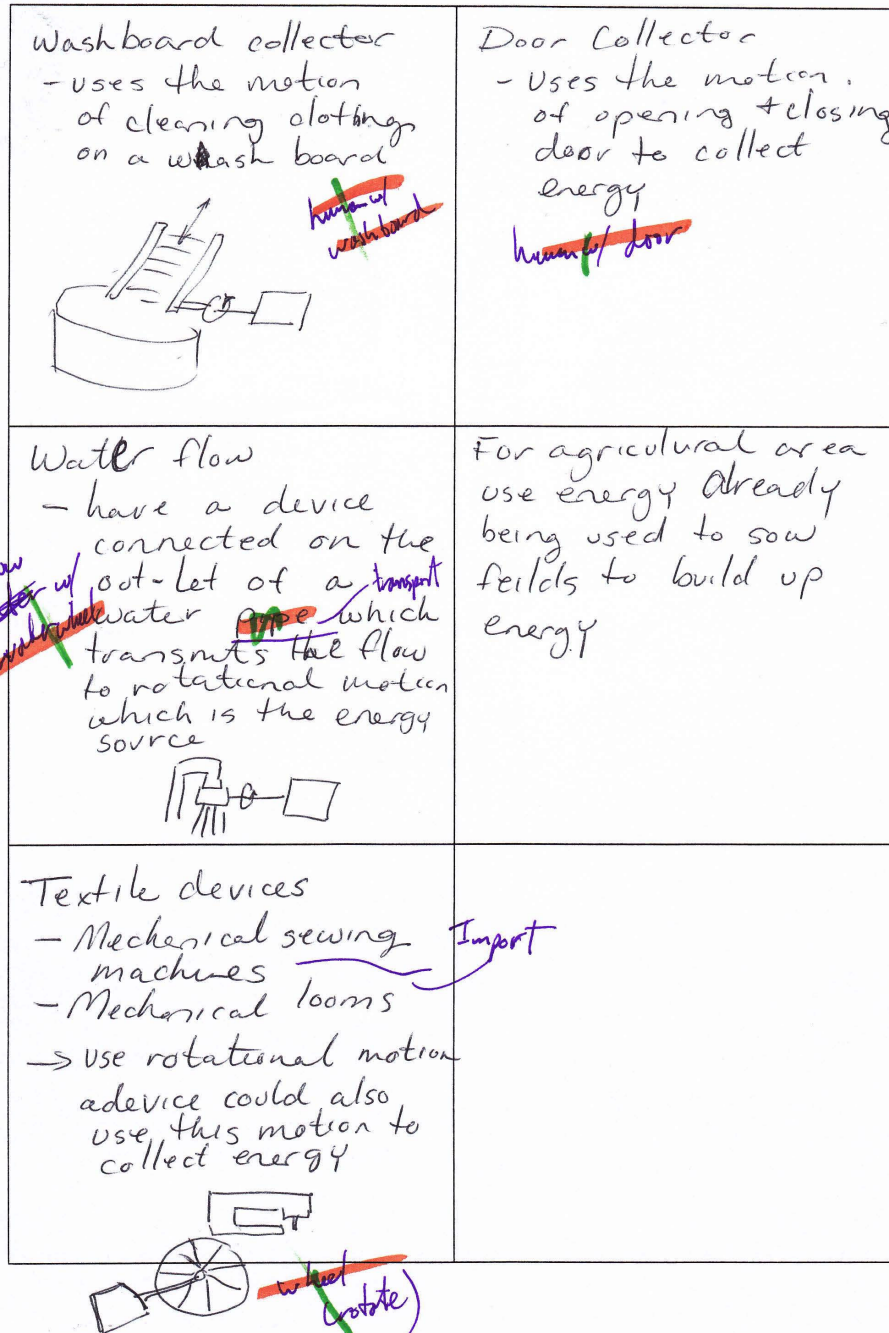 Washboard collector
- uses the motion
of cleaning clothing
on a wash board
human w/
washboard
Door Collector
- Uses the motion
of opening + closing
door to collect
energy
human w/ door
Water flow
- have a device
connected on the
out-let of a
water pipe which
transmits the flow
to rotational motion
which is the energy
source
transport
w/
waterwheel
For agriculural area
use energy already
being used to sow
feilds to build up
energy
Textile devices
- Mechanical sewing
machines
- Mechanical looms
→ use rotational motion
a device could also
use this motion to
collect energy
Import
wheel
(rotate)